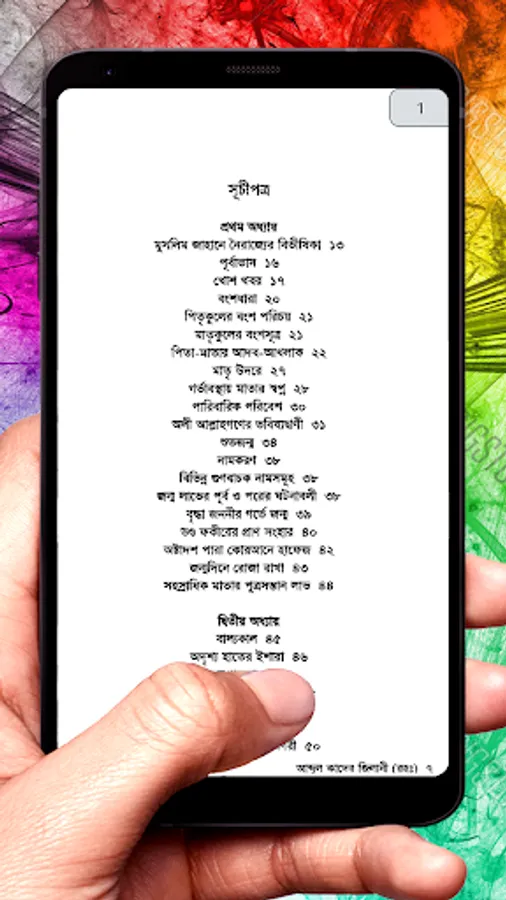 1
সূচীপত্র
প্রথম অধ্যায়
মুসলিম জাহানে নৈরাজ্যের বিভীষিকা ১৩
পূর্বাভাস ১৬
খোশ খবর ১৭
বংশধারা ২০
পিতৃকুলের বংশ পরিচয় ২১
মাতৃকুলের বংশসূত্র ২১
পিতা-মাতার আদব-আখলাক ২২
মাতৃ উদরে ২৭
গর্ভাবস্থায় মাতার স্বপ্ন ২৮
পারিবারিক পরিবেশ ৩০
অলী আল্লাহগণের ভবিষ্যদ্বাণী ৩১
শুভজন্ম ৩৪
নামকরণ ৩৮
বিভিন্ন গুণবাচক নামসমূহ ৩৮
জন্ম লাভের পূর্ব ও পরের ঘটনাবলী ৩৮
বৃদ্ধা জননীর গর্ভে জন্ম ৩৯
ভণ্ড ফকীরের প্রাণ সংহার ৪০
অষ্টাদশ পারা কোরআনে হাফেজ ৪২
জন্মদিনে রোজা রাখা ৪৩
সহস্রাধিক মাতার পুত্রসন্তান লাভ ৪৪
দ্বিতীয় অধ্যায়
বাল্যকাল ৪৫
অদৃশ্য হাতের ইশারা ৪৬
৫০
আব্দুল কাদের জিলানী (রহঃ) ৭